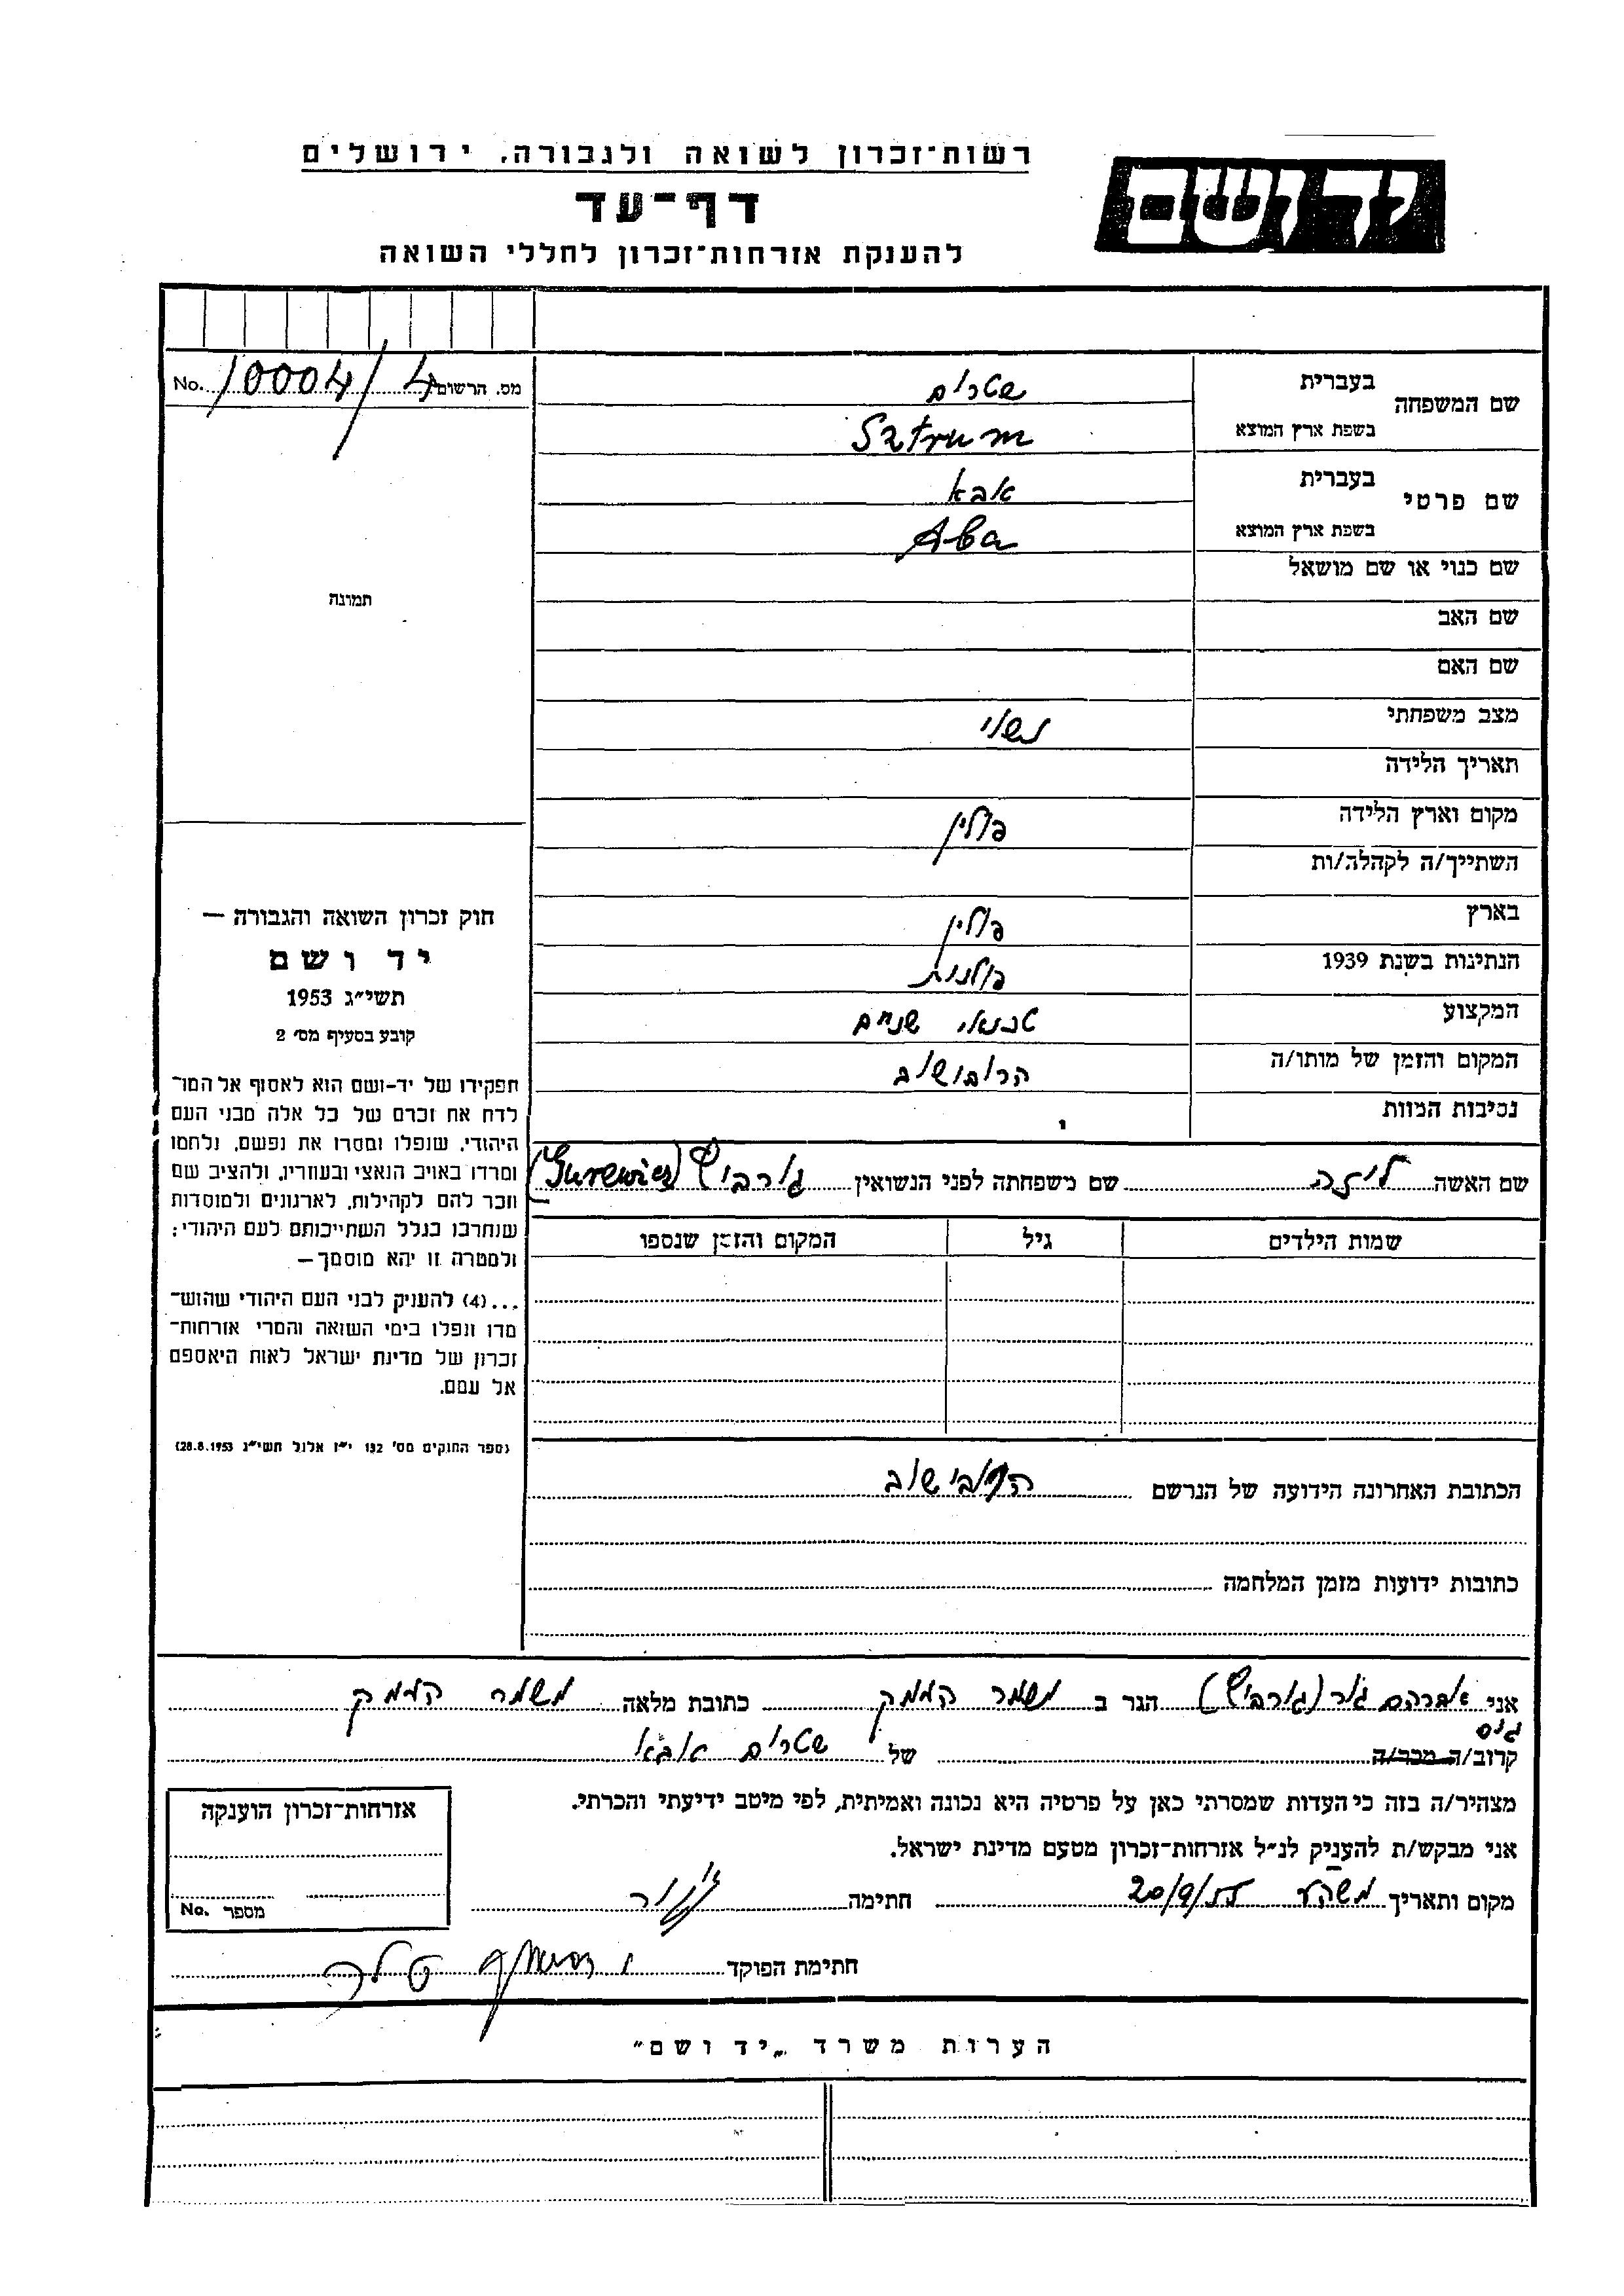 רשות־זכרון לשואה ולגבורה, ירושלים
יד ושם
דף־עד
להענקת אזרחות־זכרון לחללי השואה
מס. הרשום 10004/4 No.
שם המשפחה
בעברית שטרום
בשפת ארץ המוצא Sztrum
שם פרטי
בעברית אבא
בשפת ארץ המוצא Aba
שם כנוי או שם מושאל
שם האב
שם האם
מצב משפחתי נשוי
תאריך הלידה
מקום וארץ הלידה פולין
השתייך/ה לקהלה/ות
בארץ פולין
הנתינות בשנת 1939 פולנית
המקצוע טכנאי שנים
המקום והזמן של מותו/ה הרובישוב
נסיבות המוות
שם האשה ליזה שם משפחתה לפני הנשואין גורביץ (Gurewicz)
שמות הילדים גיל המקום והזמן שנספו
הכתובת האחרונה הידועה של הנרשם הרובישוב
כתובות ידועות מזמן המלחמה
תמונה
חוק זכרון השואה והגבורה —
יד ושם
תשי״ג 1953
קובע בסעיף מס׳ 2
תפקידו של יד-ושם הוא לאסוף אל המו־
לדת את זכרם של כל אלה מבני העם
היהודי, שנפלו ומסרו את נפשם, נלחמו
ומרדו באויב הנאצי ובעוזריו, ולהציב שם
וזכר להם לקהילות, לארגונים ולמוסדות
שנחרבו בגלל השתייכותם לעם היהודי;
ולמטרה זו יהא מוסמך—
...(4) להעניק לבני העם היהודי שהוש־
מדו ונפלו בימי השואה והמרי אזרחות־
זכרון של מדינת ישראל לאות היאספם
אל עמם.
(ספר החוקים מס׳ 132 י״ז אלול תשי״ג 28.8.1953)
אני אברהם גור (גורביץ) הגר ב משמר העמק כתובת מלאה משמר העמק
גיס
קרוב/ה מכר/ה של שטרום אבא
מצהיר/ה בזה כי העדות שמסרתי כאן על פרטיה היא נכונה ואמיתית, לפי מיטב ידיעתי והכרתי.
אני מבקש/ת להעניק לנ״ל אזרחות־זכרון מטעם מדינת ישראל.
מקום ותאריך משה״ע 20/9/55 חתימה
חתימת הפוקד
אזרחות־זכרון הוענקה
מספר No.
הערות משרד „יד ושם״